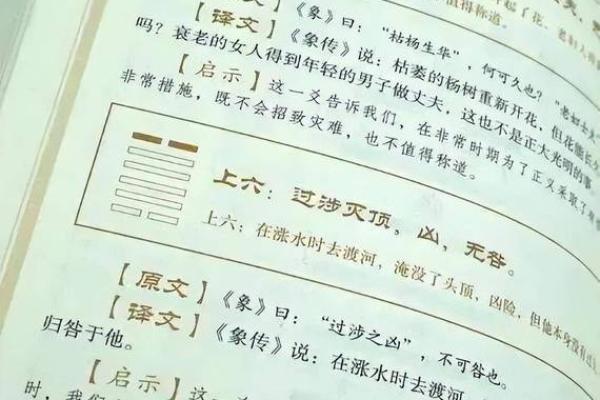 起了花，老妇人
值得称道。
【原文】《象》曰：“枯杨生华”，何可久也？“老妇士夫
【译文】《象传》说：枯萎的杨树重新开花，但花能长久
吗？衰老的女人得到年轻的男子做丈夫，这也不是正大光明的事
【启示】这一爻告诉我们，在非常时期为了正义采取
非常措施，既不会招致灾难，也不值得称道。
上六：过涉灭顶，凶，无咎。
上六：在涨水时去渡河，淹没了头顶，凶险，但他本身没有过
【原文】《象》曰：“过涉之凶”，不可咎也。
【译文】《象传》说：在涨水时去渡河
归咎于他。
【启示】这一
时，我们